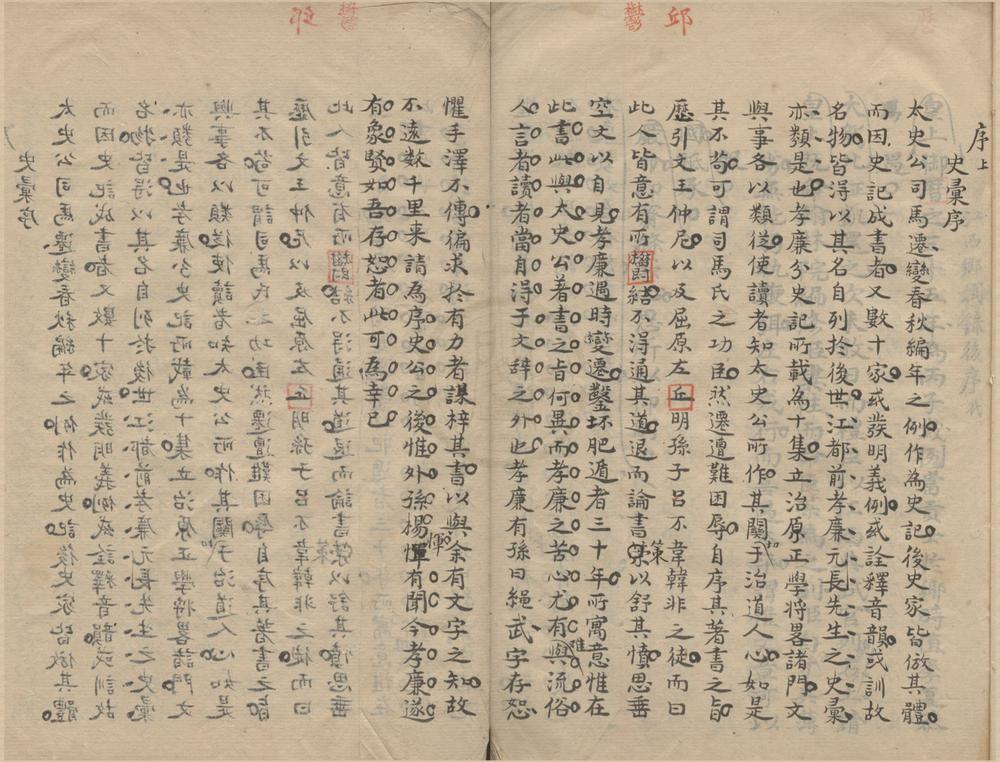 序上
史彙序
太史公司馬遷變春秋編年之例作為史記後史家皆倣其體
而因史記成書者又數十家或發明義例或詮釋音韻或訓故
名物皆得以其名自列於後世江都前孝廉元長先生之史彙
亦類是也孝廉分史記所載為十集立治原正學將畧諸門文
與事各以類從使讀者知太史公所作其關于治道人心如是
其不苟可謂司馬氏之功臣然遷遭難困辱自序其著書之旨
歷引文王仲尼以及屈原左丘明孫子呂不韋韓非之徒而曰
此人皆意有所鬱結不得通其道退而論書策以舒其憤思垂
空文以自見孝廉遇時變遷鑿坏肥遁者三十年所寓意惟在
此書此與太史公著書之旨何異而孝廉之苦心尤有難與流俗
人言者讀者當自得于文辭之外也孝廉有孫曰繩武字存恕
懼手澤不傳徧求於有力者謀梓其書以與余有文字之知故
不遠數千里来請為序史公之後惟外孫楊惲有聞今孝廉遂
有象賢如吾存恕者此可為幸已
邱
鬱